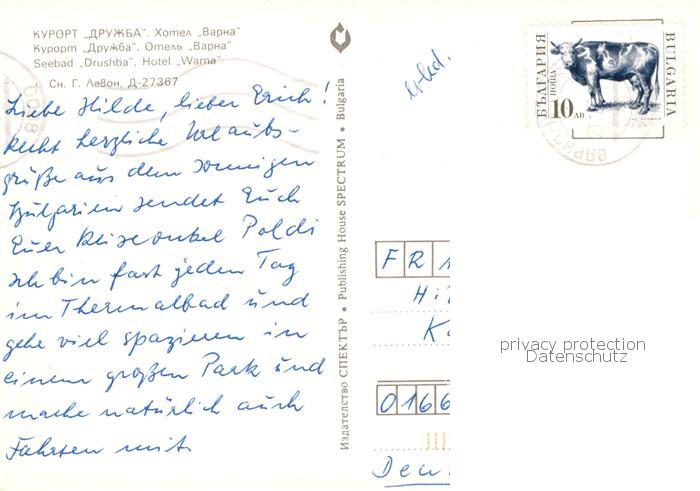 КУРОРТ „ДРУЖБА". Хотел „Варна"
Курорт „Дружба". Отель „Варна"
Seebad „Drushba". Hotel „Warna"
Сн. Г. Левон, Д-27367
Liebe Hilde, lieber Erich!
Recht herzliche Urlaubs-
grüße aus dem sonnigen
Bulgarien sendet Euch
Euer Reiseonkel Poldi
Ich bin fast jeden Tag
im Thermalbad und
gehe viel spazieren in
einem großen Park und
mache natürlich auch
Fahrten mit.
Издателство СПЕКТЪР • Publishing House SPECTRUM • Bulgaria
erled.
БЪЛГАРИЯ
ПОЩА
10 ЛВ
BULGARIA
ВАРНА
FR1
Hi
K
0166
Deu
privacy protection
Datenschutz